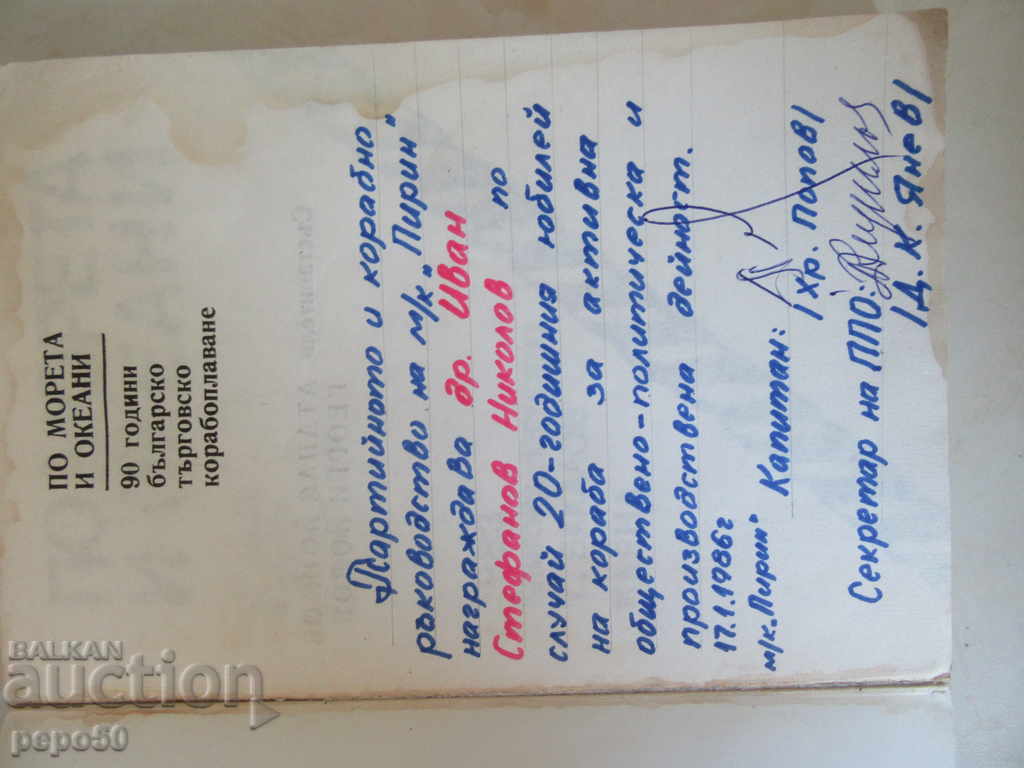 ПО МОРЕТА
И ОКЕАНИ
90 години
българско
търговско
корабоплаване
Партийното и корабно
ръководство на м/к „Пирин"
награждава др. Иван
Стефанов Николов по
случай 20-годишния юбилей
на кораба за активна
обществено-политическа и
производствена дейност.
17.1.1986г
м/к „Пирин"
Капитан:
/Хр. Попов/
Секретар на ППО:
/Д. К. Янев/
BALKAN
auction
pepo50